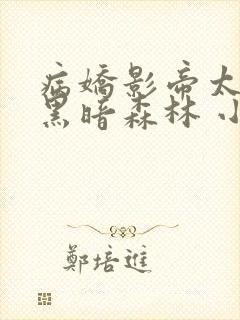 病嬌影帝太
黑暗森林 小
鄭培進